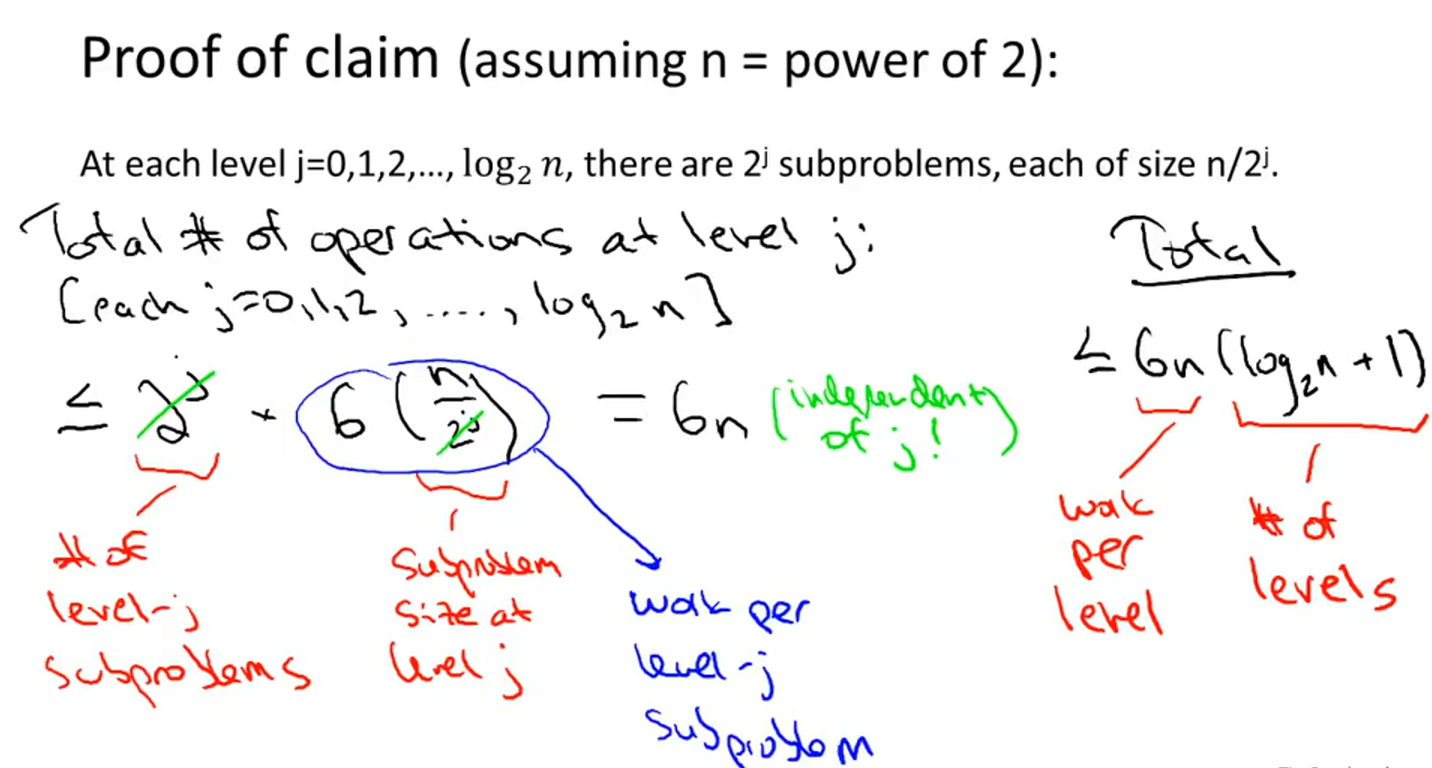 Proof of claim (assuming n = power of 2):
At each level j=0,1,2,..., log₂ n, there are 2ʲ subproblems, each of size n/2ʲ.
Total # of operations at level j:
[each j=0,1,2, ...., log₂ n]
≤ 2ʲ * 6 (n/2ʲ) = 6n (independent of j!)
# of
level-j
subproblems
Subproblem
size at
level j
work per
level-j
subproblem
Total
≤ 6n (log₂n + 1)
work
per
level
# of
levels